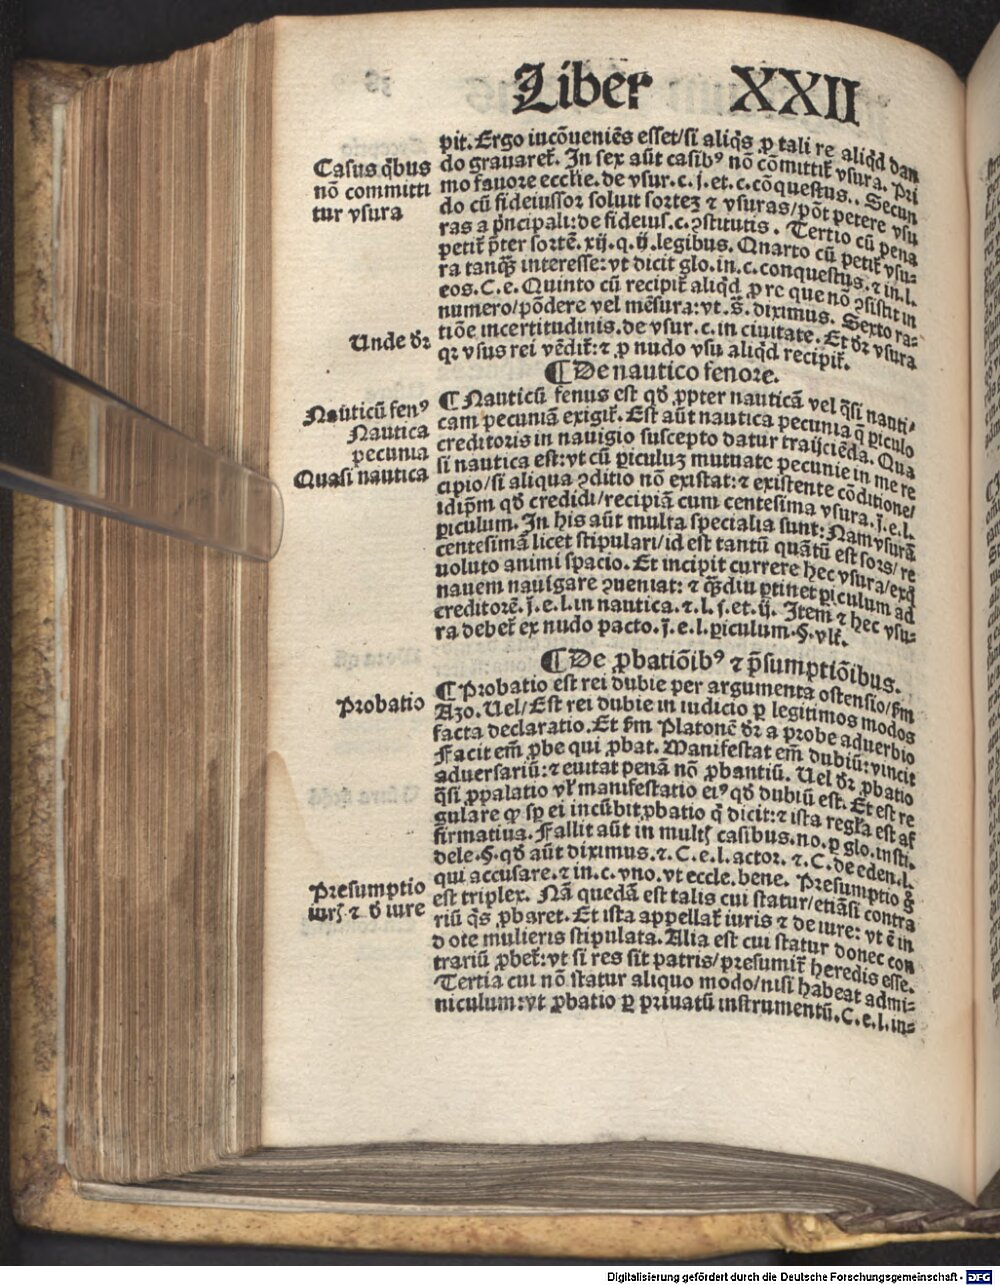 Liber XXII
pit. Ergo incōueniēs esset/si aliqͥs ꝑ tali re aliqͥd dan
do grauaret᷑. In sex aūt casibꝰ nō cōmittit᷑ vsura. Pri
mo fauore ecclīe. de vsur. c. j. et. c. cōquestus.. Secun
do cū fideiussor soluit sortez ⁊ vsuras/pōt petere vsu
ras a pͥncipali: de fideius. c. ꝯstitutis. Tertio cū pena
petit᷑ p̄ter sortē. xij. q. ij. legibus. Quarto cū petit᷑ vsu-
ra tanqꝫ interesse: vt dicit glo. in. c. conquestus. ⁊ in. l.
eos. C. e. Quinto cū recipit᷑ aliqͥd ꝓ re que nō ꝯsistit in
numero/pōdere vel mēsura: vt. s̄. diximus. Sexto ra-
tiōe incertitudinis. de vsur. c. in ciuitate. Et dr̄ vsura
qꝛ vsus rei vēdit᷑: ⁊ ꝓ nudo vsu aliqͥd recipit᷑.
Casus qͥbus
nō committi
tur vsura
Unde dr̄
¶ De nautico fenore.
¶ Nauticū fenus est qd̄ ꝓpter nauticā vel qͣsi nauti-
cam pecuniā exigit᷑. Est aūt nautica pecunia q̄ ꝑiculo
creditoris in nauigio suscepto datur traijciēda. Qua
si nautica est: vt cū ꝑiculuz mutuate pecunie in me re
cipio/si aliqua ꝯditio nō existat: ⁊ existente cōditione/
idip̄m qd̄ credidi/recipiā cum centesima vsura. j̄. e. l.
ꝑiculum. In his aūt multa specialia sunt: Nam vsurā
centesimā licet stipulari/id est tantū quātū est sors/re
uoluto animi spacio. Et incipit currere hec vsura/exq̄
nauem nauigare ꝯueniat: ⁊ qꝫdiu ꝑtinet ꝑiculum ad
creditorē. j̄. e. l. in nautica. ⁊. l. j. et. ij. Item ⁊ hec vsu-
ra debet᷑ ex nudo pacto. j̄. e. l. ꝑiculum. §. vlt᷑.
Nauticū fenꝰ
Nautica
pecunia
Quasi nautica
¶ De ꝓbatiōibꝰ ⁊ p̄sumptiōibus.
¶ Probatio est rei dubie per argumenta ostensio/ẜm
Azo. Uel/Est rei dubie in iudicio ꝑ legitimos modos
facta declaratio. Et ẜm Platonē dr̄ a probe aduerbio
Facit em̄ ꝓbe qui ꝓbat. Manifestat em̄ dubiū: vincit
aduersariū: ⁊ euitat penā nō ꝓbantiū. Uel dr̄ ꝓbatio
qͣsi ꝓpalatio vl̓ manifestatio eiꝰ qd̄ dubiū est. Et est re
gulare ꝙ sꝑ ei incūbit ꝓbatio q̄ dicit: ⁊ ista regl̓a est af
firmatiua. Fallit aūt in multꝭ casibus. no. ꝑ glo. insti.
dele. §. qd̄ aūt diximus. ⁊. C. e. l. actor. ⁊. C. de eden. l.
qui accusare. ⁊ in. c. vno. vt eccle. bene. Presumptio ḡ
est triplex. Nā quedā est talis cui statur/etiāsi contra
riū qͥs ꝓbaret. Et ista appellat᷑ iuris ⁊ de iure: vt ē in
dote mulieris stipulata. Alia est cui statur donec con
trariū ꝓbet᷑: vt si res sit patris/presumit᷑ heredis esse.
Tertia cui nō statur aliquo modo/nisi habeat admi-
niculum: vt ꝓbatio ꝑ priuatū instrumentū. C. e. l. in-
Probatio
Presumptio
iurꝭ ⁊ d̄ iure
Digitalisierung gefördert durch die Deutsche Forschungsgemeinschaft - DFG